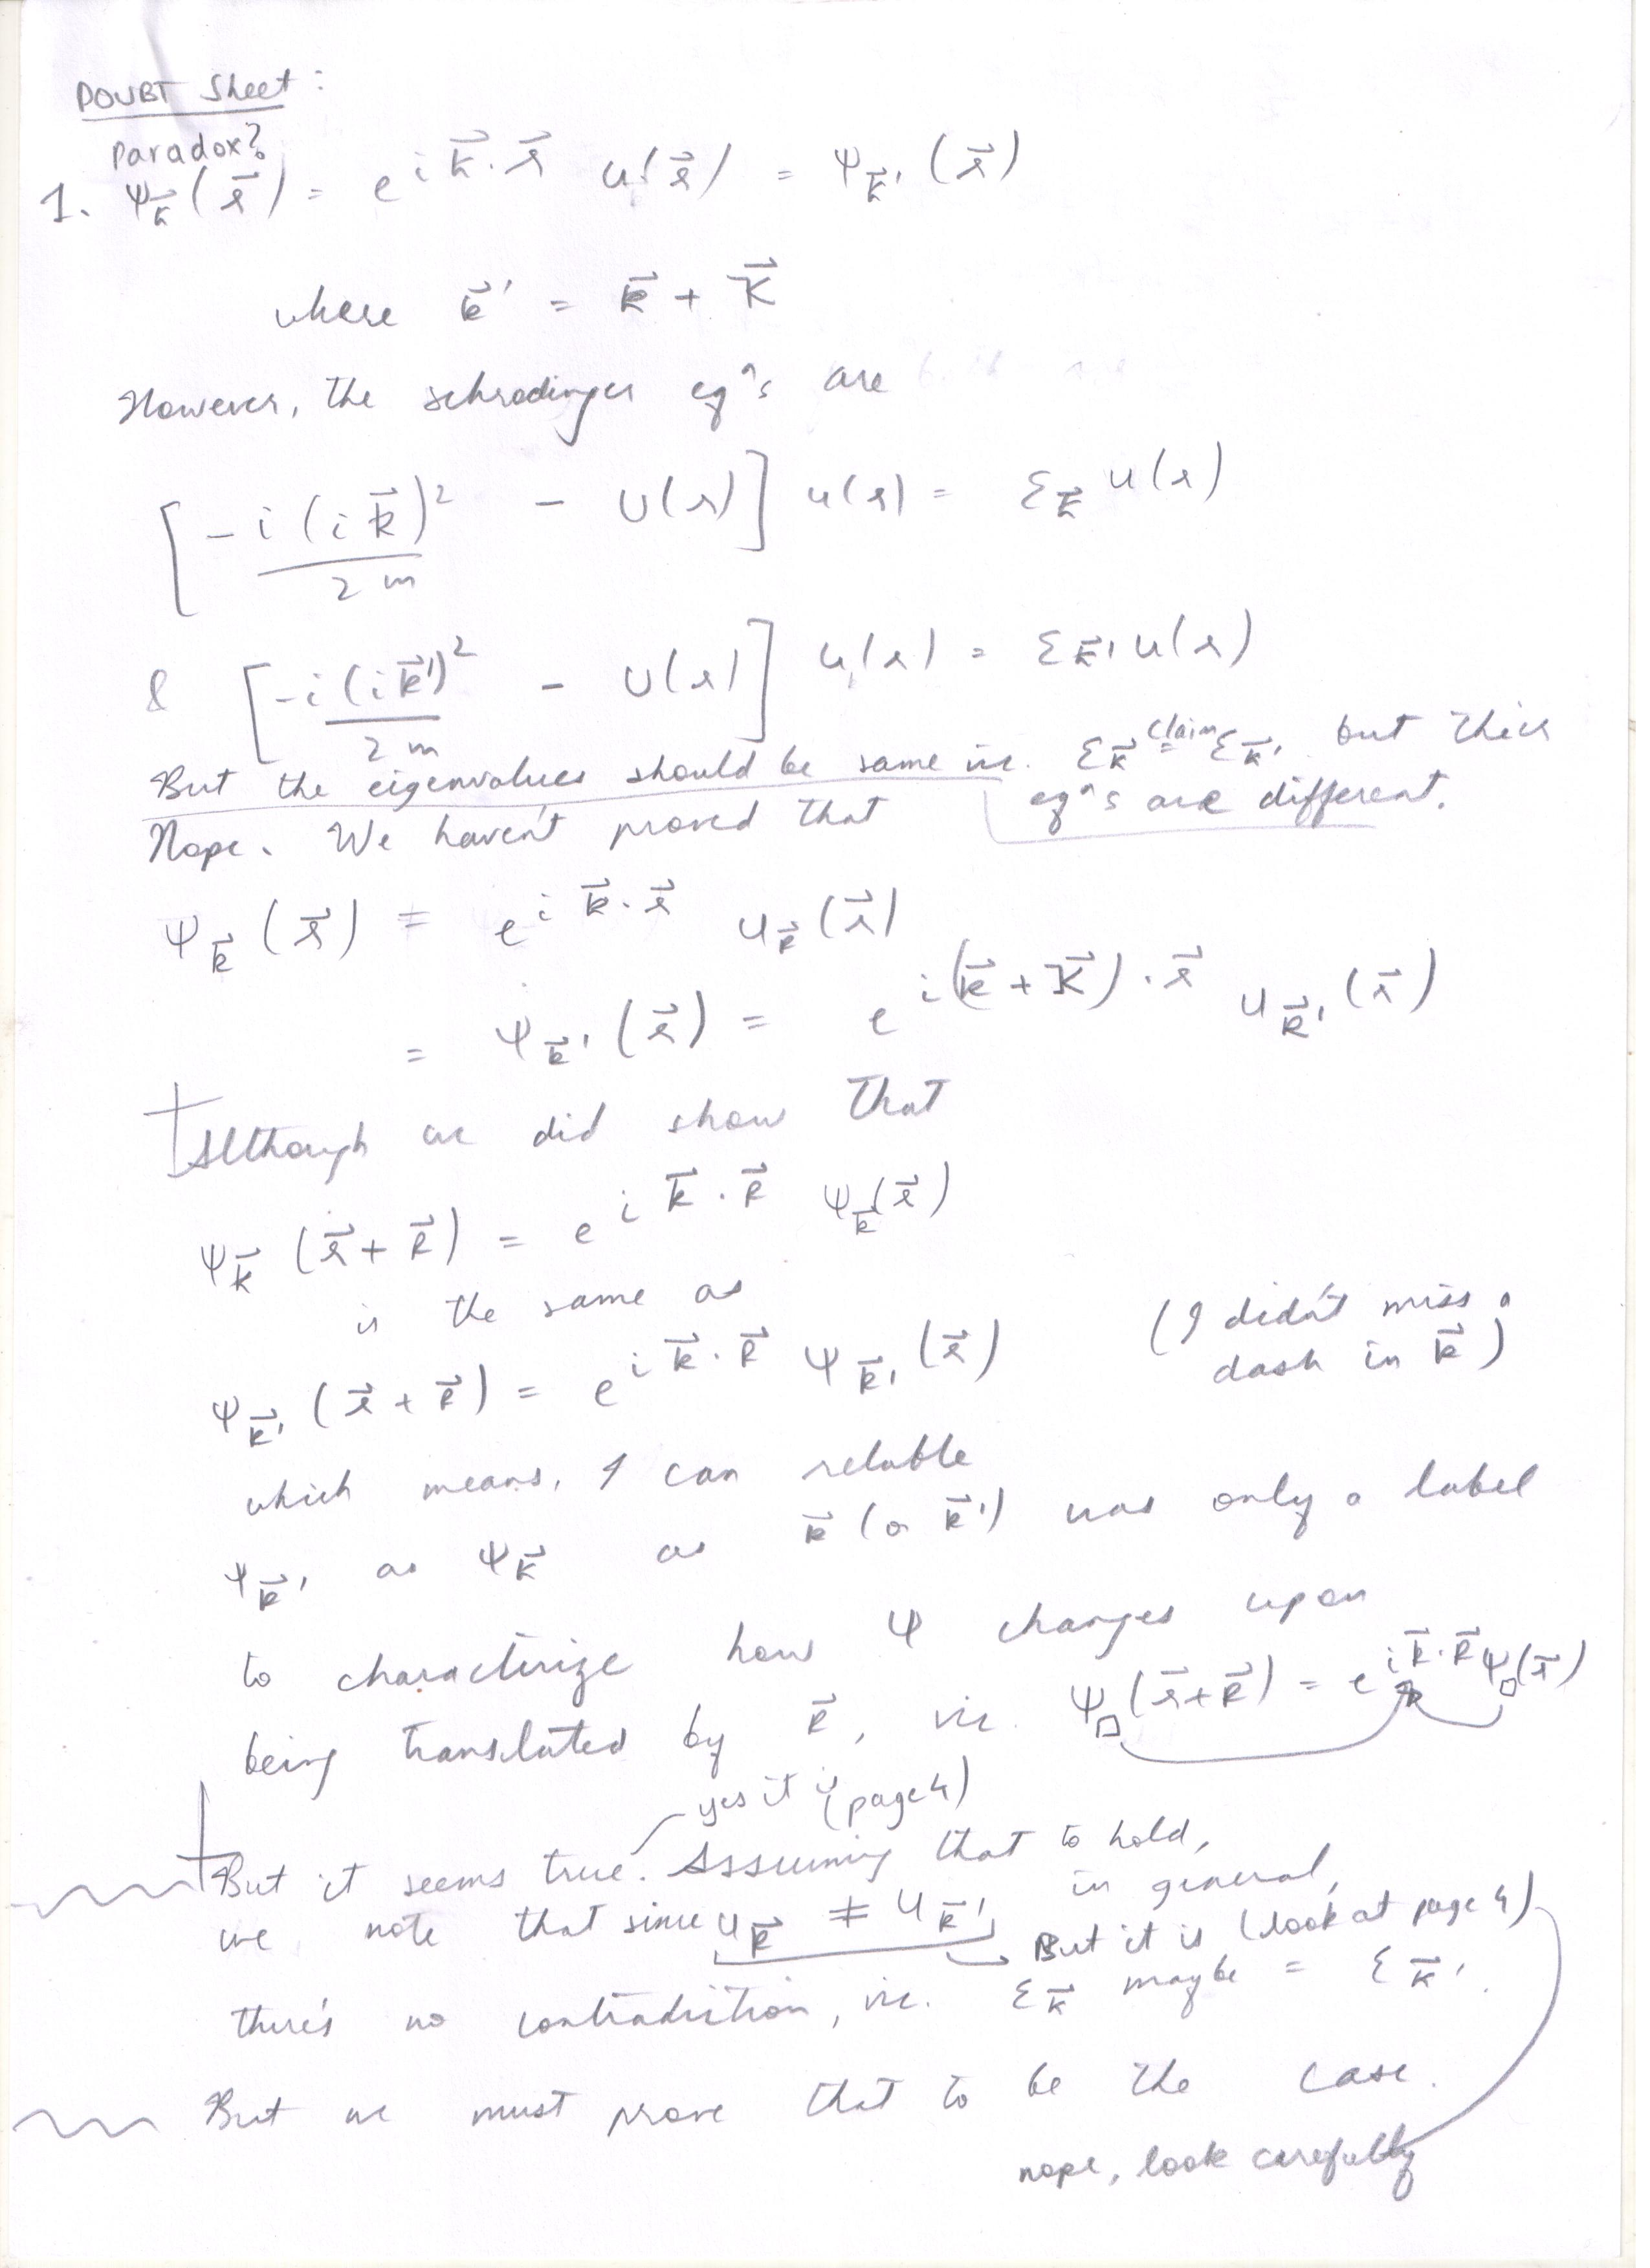 DOUBT Sheet :
Paradox?
1. ψ_k⃗ (r⃗) = e^{i k⃗·r⃗} u(r⃗) = ψ_k⃗' (r⃗)
where k⃗' = k⃗ + K⃗
However, the schrodinger eqⁿs are
[ -i (i k⃗)² / 2m - U(r) ] u(r) = ε_k⃗ u(r)
& [ -i (i k⃗')² / 2m - U(r) ] u(r) = ε_k⃗' u(r)
But the eigenvalues should be same viz. ε_k⃗ =^{claim} ε_k⃗' but their
eqⁿs are different.
Nope. We haven't proved that
ψ_k⃗ (r⃗) = e^{i k⃗·r⃗} u_k⃗ (r⃗)
= ψ_k⃗' (r⃗) = e^{i(k⃗ + K⃗)·r⃗} u_k⃗' (r⃗)
Although we did show that
ψ_k⃗ (r⃗ + R⃗) = e^{i k⃗·R⃗} ψ_k⃗ (r⃗)
is the same as
ψ_k⃗' (r⃗ + R⃗) = e^{i k⃗·R⃗} ψ_k⃗' (r⃗) (I didn't miss a
dash in k⃗)
which means, I can relable
ψ_k⃗' as ψ_k⃗ as k⃗ (or k⃗') was only a label
to characterize how ψ changes upon
being translated by R⃗, viz. ψ_□ (r⃗+R⃗) = e^{i k⃗·R⃗} ψ_□ (r⃗)
yes it is (page 4)
But it seems true. Assuming that to hold,
we note that since u_k⃗ ≠ u_k⃗' in general,
But it is (look at page 4)
there's no contradiction, viz. ε_k⃗ maybe = ε_k⃗'.
But we must prove that to be the case.
nope, look carefully